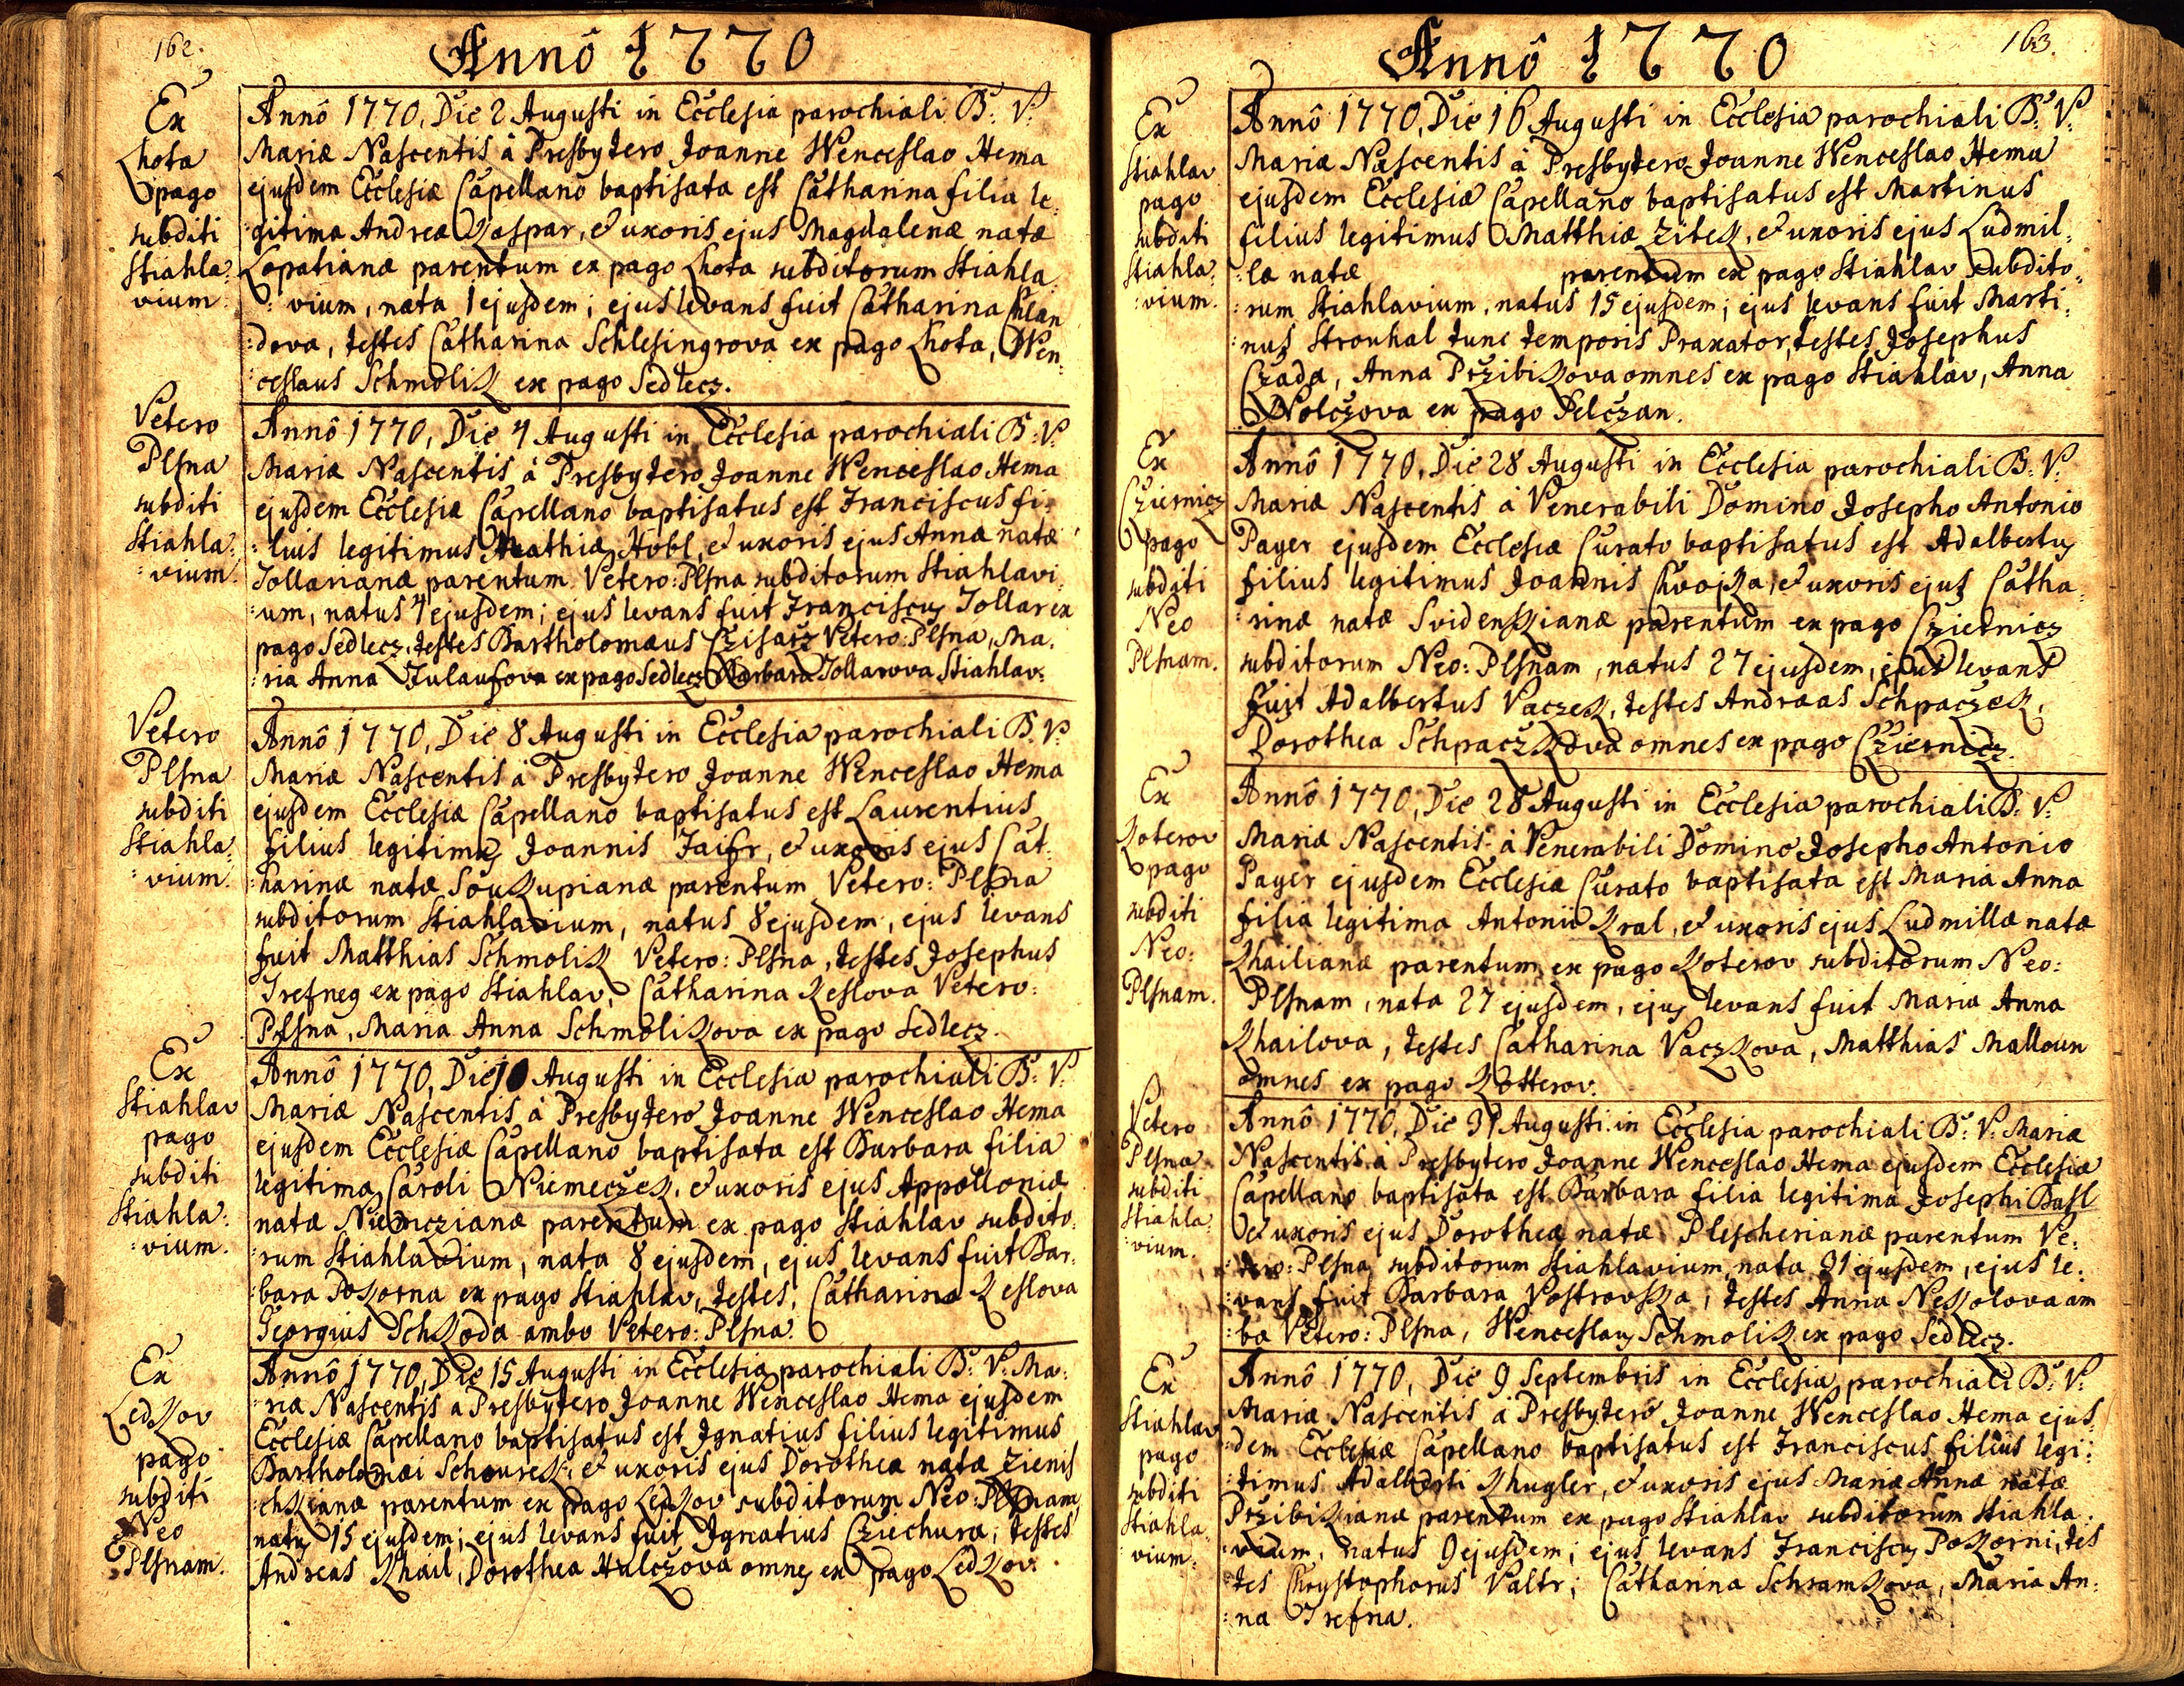 162.
Annô 1770
Ex
Lhota
pago
subditi
Stiahla:
vium.
Annô 1770, Die 2 Augusti in Ecclesia parochiali B: V:
Mariæ Nascentis à Presbytero Joanne Wenceslao Hema
ejusdem Ecclesiæ Capellano baptisata est Catharina filia le:
gitima Andreæ Kaspar, & uxoris ejus Magdalenæ natæ
Lopatianæ parentum ex pago Lhota subditorum Stiahla
:vium, nata 1 ejusdem; ejus levans fuit Catharina Chlan
:dova, testes Catharina Schlesingrova ex pago Lhota, Wen:
ceslaus Schmolik ex pago Sedlecz.
Vetero
Plsna
subditi
Stiahla:
:vium.
Annô 1770, Die 4 Augusti in Ecclesia parochiali B: V:
Mariæ Nascentis à Presbytero Joanne Wenceslao Hema
ejusdem Ecclesiæ Capellano baptisatus est Franciscus fi:
:lius legitimus Mathiæ Hobl, & uxoris ejus Annæ natæ
Tollarianæ parentum Vetero: Plsna subditorum Stiahlavi:
:um, natus 4 ejusdem; ejus levans fuit Franciscus Tollar ex
pago Sedlecz, testes Bartholomæus Czisarz Vetero: Plsna, Ma:
:ria Anna Fulaufova ex pago Sedlecz Barbara Tollarova Stiahlav:
Vetero
Plsna
subditi
Stiahla:
:vium.
Annô 1770, Die 8 Augusti in Ecclesia parochiali B: V:
Mariæ Nascentis à Presbytero Joanne Wenceslao Hema
ejusdem Ecclesiæ Capellano baptisatus est Laurentius
filius legitimus Joannis Faifr, & uxoris ejus Cat:
:harinæ natæ Soukupianæ parentum Vetero: Plsna
subditorum Stiahlavium, natus 8 ejusdem, ejus levans
fuit Matthias Schmolik Vetero: Plsna, testes Josephus
Trefneg ex pago Stiahlav, Catharina Keslova Vetero:
Plsna, Maria Anna Schmolikova ex pago Sedlecz.
Ex
Stiahlav
pago
subditi
Stiahla:
:vium.
Annô 1770, Die 10 Augusti in Ecclesia parochiali B: V:
Mariæ Nascentis à Presbytero Joanne Wenceslao Hema
ejusdem Ecclesiæ Capellano baptisata est Barbara filia
legitima Caroli Niemeczek, & uxoris ejus Appolloniæ
natæ Niemczianæ parentum ex pago Stiahlav subdito:
:rum Stiahlavium, nata 8 ejusdem, ejus levans fuit Bar:
:bara Pokorna ex pago Stiahlav, testes, Catharina Keslova
Georgius Schkoda ambo Vetero: Plsna.
Ex
Ledkov
pago
subditi
Neo
Plsnam.
Annô 1770, Die 15 Augusti in Ecclesia parochiali B: V: Ma:
:riæ Nascentis à Presbytero Joanne Wenceslao Hema ejusdem
Ecclesiæ Capellano baptisatus est Ignatius filius legitimus
Bartholomæi Schourek, & uxoris ejus Dorotheæ natæ Zienis
:chkianæ parentum ex pago Ledkov subditorum Neo: Plsnam
natus 15 ejusdem; ejus levans fuit Ignatius Cziechura; testes
Andreas Khail, Dorothea Halczova omnes ex pago Ledkov.
163.
Annô 1770
Ex
Stiahlav
pago
subditi
Stiahla:
:vium.
Annô 1770, Die 16 Augusti in Ecclesia parochiali B: V:
Mariæ Nascentis à Presbytero Joanne Wenceslao Hema
ejusdem Ecclesiæ Capellano baptisatus est Martinus
filius legitimus Matthiæ Zitek, & uxoris ejus Ludmil:
:læ natæ parentum ex pago Stiahlav subdito:
:rum Stiahlavium, natus 15 ejusdem; ejus levans fuit Marti:
:nus Strouhal tunc temporis Praxator, testes Josephus
Czada, Anna Przibikova omnes ex pago Stiahlav, Anna
Wolczova ex pago Pelczan.
Ex
Cziernicz
pago
subditi
Neo
Plsnam.
Annô 1770, Die 28 Augusti in Ecclesia parochiali B: V:
Mariæ Nascentis à Venerabili Domino Josepho Antonio
Payer ejusdem Ecclesiæ Curato baptisatus est Adalbertus
filius legitimus Joannis Chvojka, & uxoris ejus Catha:
:rinæ natæ Svidenkianæ parentum ex pago Cziernicz
subditorum Neo: Plsnam, natus 27 ejusdem, ejus levans
fuit Adalbertus Vaczek, testes Andræas Schpaczek,
Dorothea Schpaczkova omnes ex pago Cziernicz.
Ex
Koterov
pago
subditi
Neo:
Plsnam.
Annô 1770, Die 28 Augusti in Ecclesia parochiali B: V:
Mariæ Nascentis à Venerabili Domino Josepho Antonio
Payer ejusdem Ecclesiæ Curato baptisata est Maria Anna
filia legitima Antonii Kral, & uxoris ejus Ludmillæ natæ
Khailianæ parentum ex pago Koterov subditorum Neo:
Plsnam, nata 27 ejusdem, ejus levans fuit Maria Anna
Khailova, testes Catharina Vaczkova, Matthias Malloun
omnes ex pago Kotterov.
Vetero
Plsna
subditi
Stiahla:
:vium.
Annô 1770, Die 31 Augusti in Ecclesia parochiali B: V: Mariæ
Nascentis à Presbytero Joanne Wenceslao Hema ejusdem Ecclesiæ
Capellano baptisata est Barbara filia legitima Josephi Basl
& uxoris ejus Dorotheæ natæ Plescherianæ parentum Ve:
:tero: Plsna subditorum Stiahlavium nata 31 ejusdem, ejus le:
:vans fuit Barbara Vostrovska, testes Anna Neskolova am
:bo Vetero: Plsna, Wenceslaus Schmolik ex pago Sedlecz.
Ex
Stiahlav
pago
subditi
Stiahla
vium:
Annô 1770, Die 9 Septembris in Ecclesia parochiali B: V:
Mariæ Nascentis à Presbytero Joanne Wenceslao Hema ejus:
:dem Ecclesiæ Capellano baptisatus est Franciscus filius legi:
:timus Adalberti Khugler, & uxoris ejus Mariæ Annæ natæ
Przibikianæ parentum ex pago Stiahlav subditorum Stiahla:
:vium, natus 9 ejusdem; ejus levans Franciscus Pokorni, tes
tes Chrystophorus Valtr; Catharina Schramkova, Maria An:
:na Trefna.